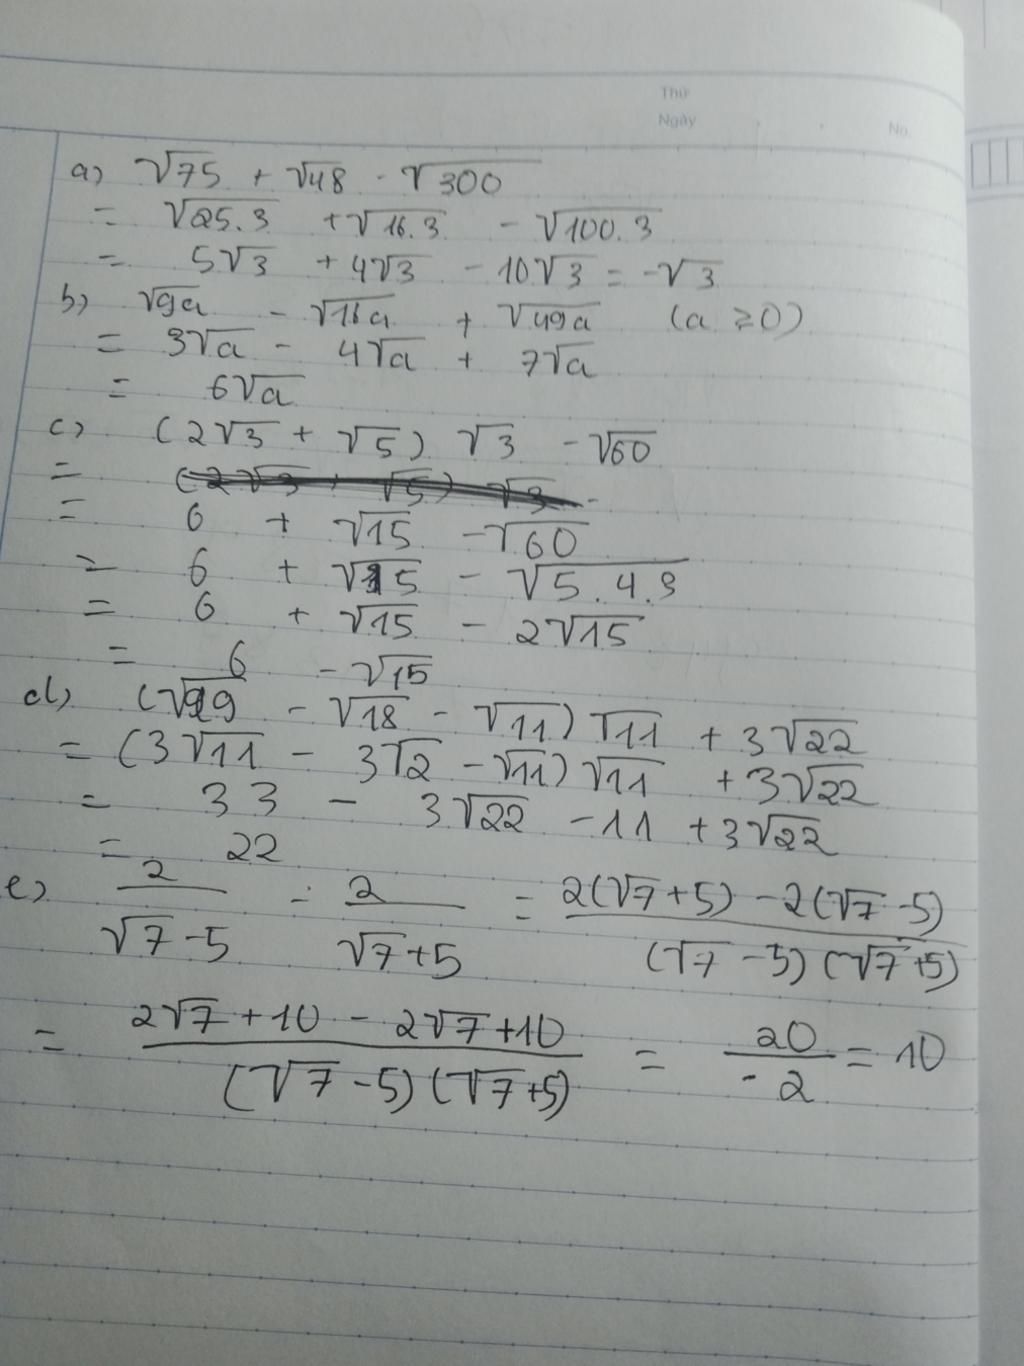 Thứ
Ngày
No.
a) √75 + √48 - √300
= √25.3 + √16.3 - √100.3
= 5√3 + 4√3 - 10√3 = -√3
b) √9a - √16a + √49a (a ≥ 0)
= 3√a - 4√a + 7√a
= 6√a
c) (2√3 + √5) √3 - √60
= (2√3 + √5) √3 -
= 6 + √15 - √60
= 6 + √15 - √5.4.3
= 6 + √15 - 2√15
= 6 - √15
d) (√99 - √18 - √11) √11 + 3√22
= (3√11 - 3√2 - √11) √11 + 3√22
= 33 - 3√22 - 11 + 3√22
= 22
e) 2/(√7 - 5) - 2/(√7 + 5) = (2(√7 + 5) - 2(√7 - 5))/((√7 - 5)(√7 + 5))
= (2√7 + 10 - 2√7 + 10)/((√7 - 5)(√7 + 5)) = 20/-2 = 10